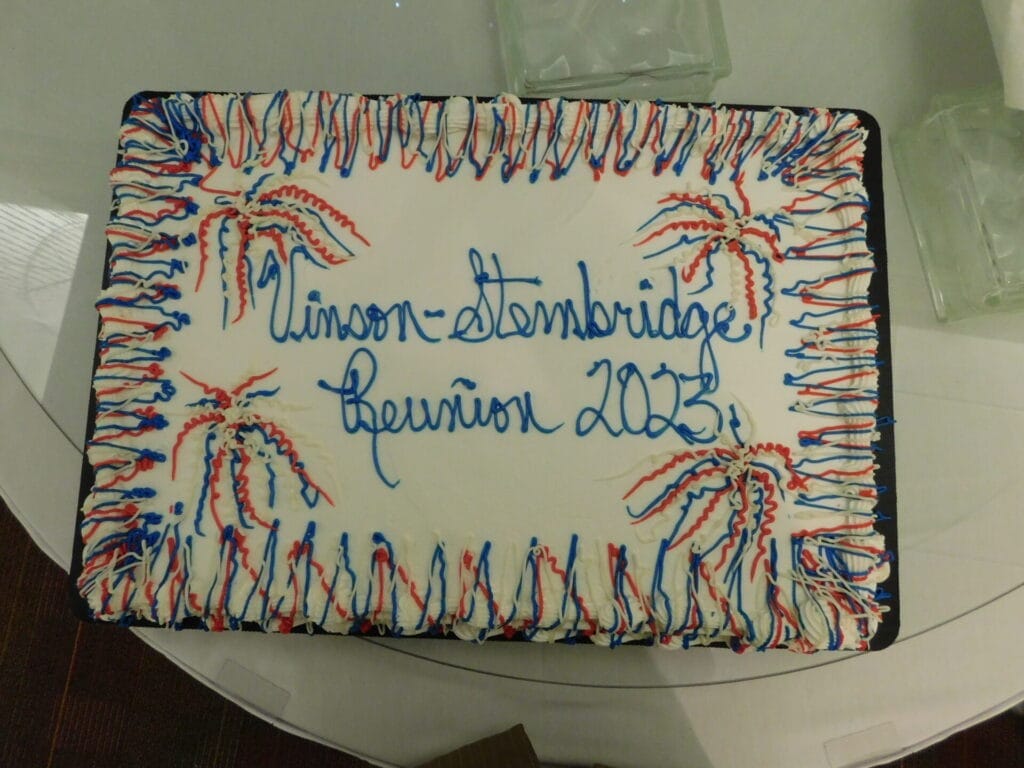 Vinson-Stembridge
Reunion 2023